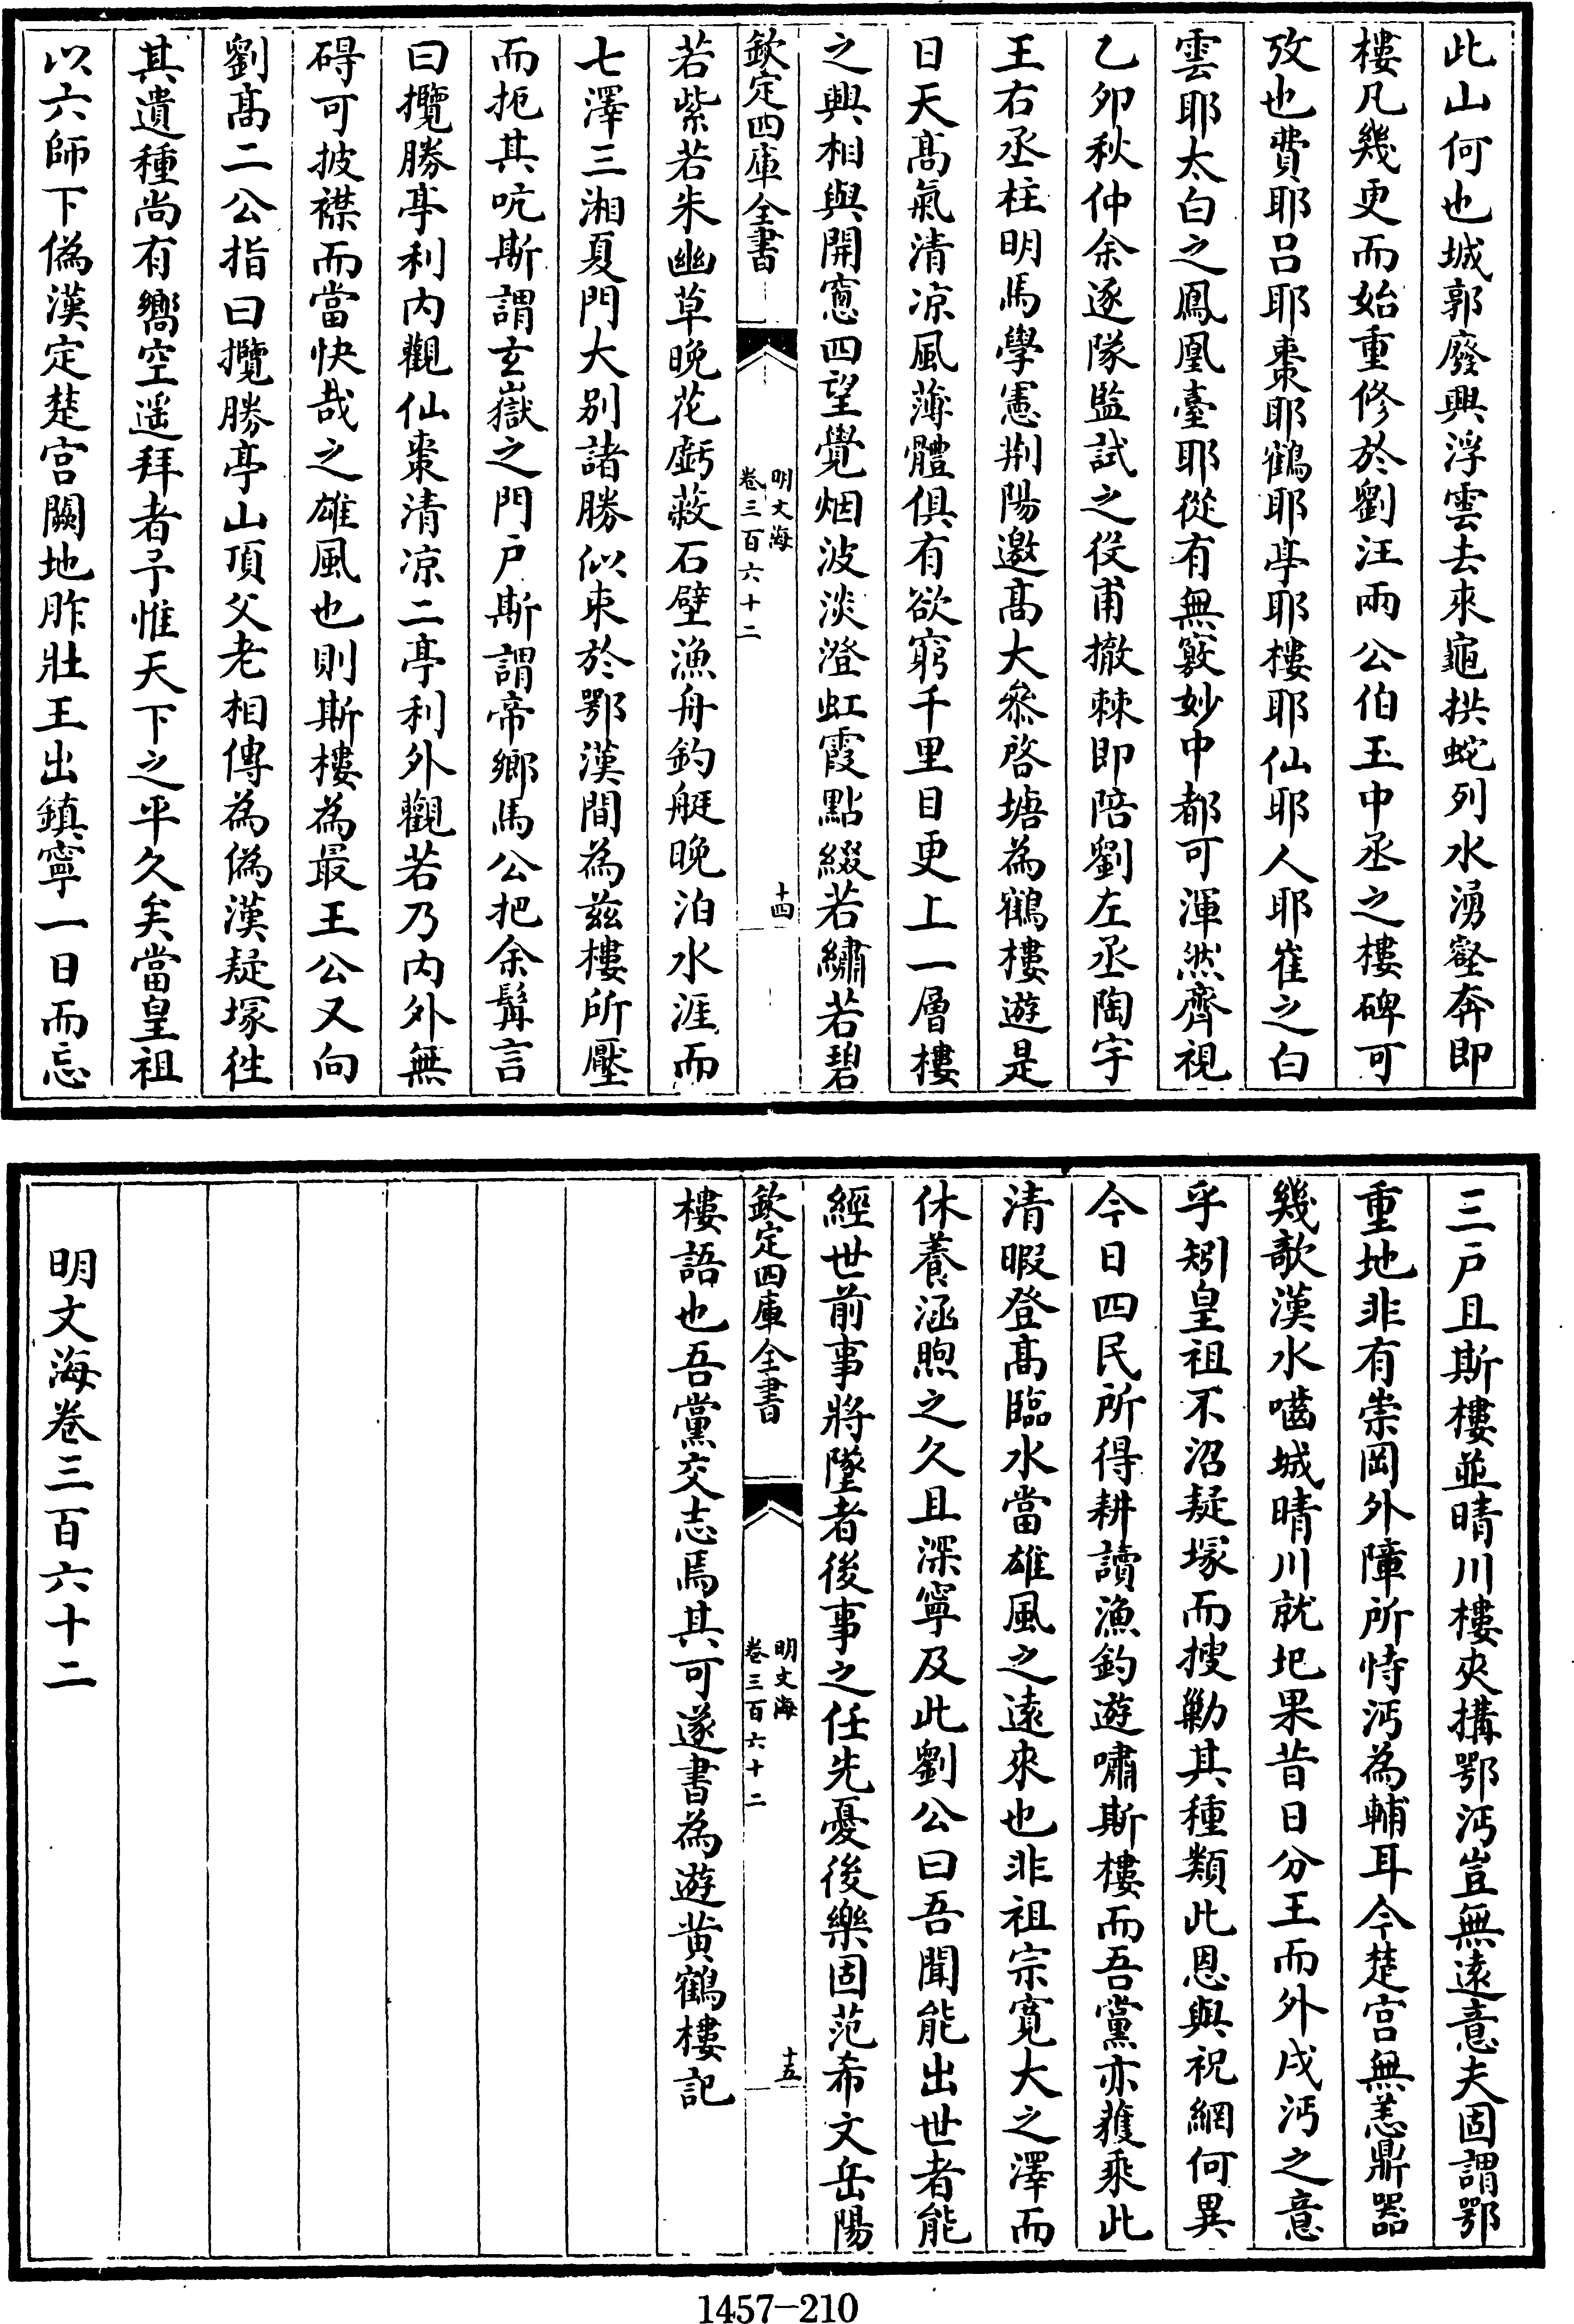 此山何也城郭廢興浮雲去來龜拱蛇列水湧壑奔即
樓凡幾更而始重修於劉汪兩公伯玉中丞之樓碑可
攷也費耶呂耶棗耶鶴耶亭耶樓耶仙耶人耶崔之白
雲耶太白之鳳凰臺耶從有無竅妙中都可渾然齊視
乙夘秋仲余逐隊監試之役甫撤棘即陪劉左丞陶宇
王右丞柱明馬學憲荆陽邀髙大叅啓塘為鶴樓遊是
日天髙氣清凉風薄體俱有欲窮千里目更上一層樓
之興相與開窻四望覺烟波淡澄虹霞點綴若繡若碧
欽定四庫全書
明文海
卷三百六十二
十四
若紫若朱幽草晚花虧蔽石壁漁舟釣艇晚泊水涯而
七澤三湘夏門大别諸勝似束於鄂漢間為兹樓所壓
而扼其吭斯謂玄嶽之門户斯謂帝鄉馬公把余髯言
曰攬勝亭利内觀仙棗清凉二亭利外觀若乃内外無
碍可披襟而當快哉之雄風也則斯樓為最王公又向
劉髙二公指曰攬勝亭山頂父老相傳為偽漢疑塚徃
其遺種尚有嚮空遥拜者予惟天下之平久矣當皇祖
以六師下偽漢定楚宫闕地胙壯王出鎮寧一日而忘
三户且斯樓並晴川樓夾搆鄂沔豈無遠意夫固謂鄂
重地非有崇岡外障所恃沔為輔耳今楚宫無恙鼎器
幾歌漢水嚙城晴川就圯果昔日分王而外戍沔之意
乎矧皇祖不沼疑塚而搜勦其種類此恩與祝網何異
今日四民所得耕讀漁釣遊嘯斯樓而吾黨亦獲乘此
清暇登髙臨水當雄風之遠來也非祖宗寛大之澤而
休養涵煦之久且深寧及此劉公曰吾聞能出世者能
經世前事將墜者後事之任先憂後樂固范希文岳陽
欽定四庫全書
明文海
卷三百六十二
十五
樓語也吾黨交志焉其可遂書為遊黄鶴樓記
明文海卷三百六十二
1457—210